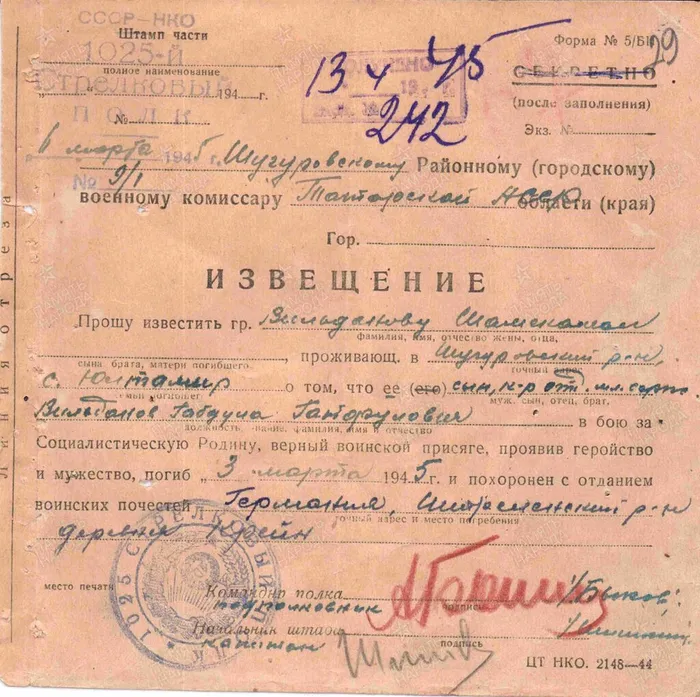 СССР-НКО
Штамп части
1025-й
полное наименование
Стрелковый
194 г.
ПОЛК
№
13 4 45
242
Форма № 5/БП
29
СЕКРЕТНО
(после заполнения)
Экз. №
6 марта 1945 г. Шугуровскому Районному (городскому)
№ 9/1
военному комиссару Татарской АССР области (края)
Гор.
ИЗВЕЩЕНИЕ
Прошу известить гр. Вильданову Шамскамал
фамилия, имя, отчество жены, отца,
проживающ. в Шугуровский р-н
сына брата, матери погибшего. точный адрес
с. Юлтамир о том, что ее (его) сын, к-р от. мл. серж
муж, сын, отец, брат,
Вильданов Габдула в бою за
должность, звание, фамилия, имя и отчество
Социалистическую Родину, верный воинской присяге, проявив геройство
и мужество, погиб „ 3 марта 1945 г. и похоронен с отданием
воинских почестей Германия, р-н
точный адрес и место погребения
деревня
место печати
Командир полка
подполковник
подпись
/Быков/
Начальник штаба
капитан
подпись
1025 СТРЕЛКОВЫЙ
ЦТ НКО. 2148—44
Линия отреза